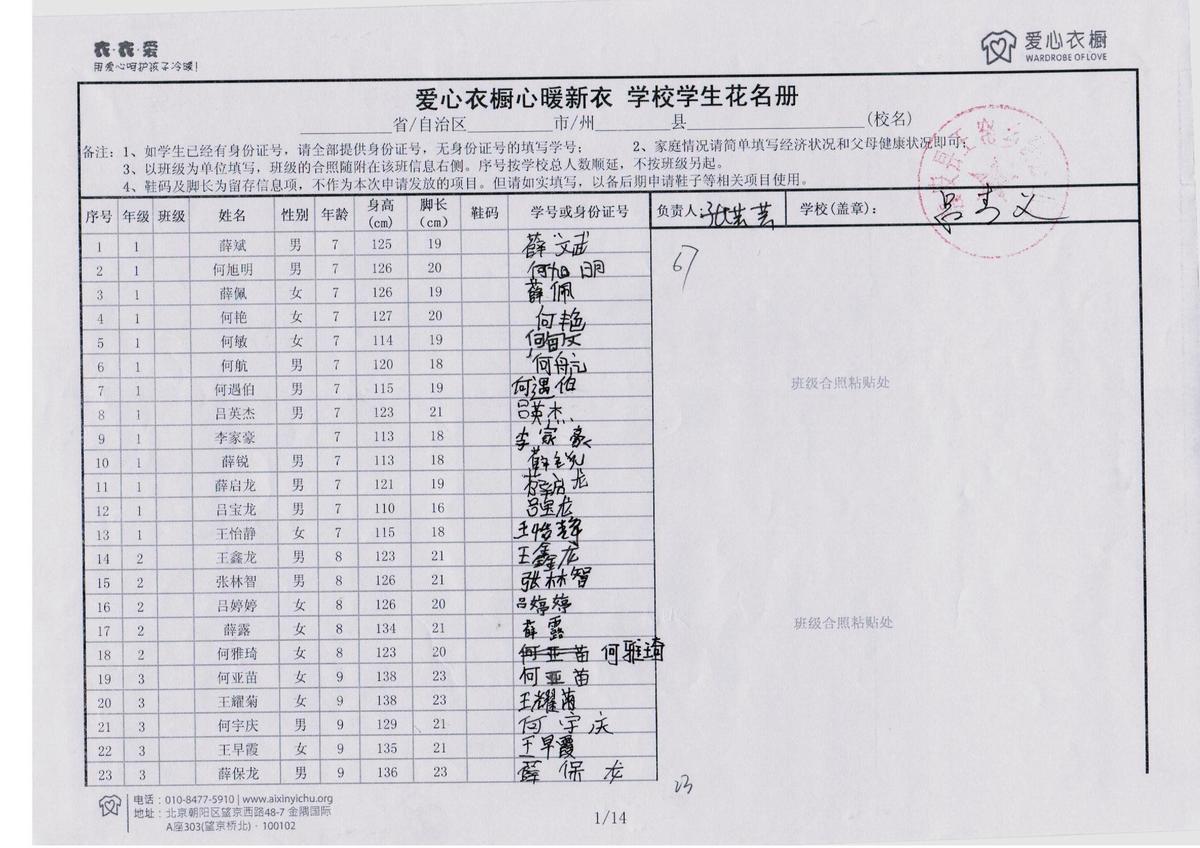 衣·衣·爱
用爱心呵护孩子冷暖!
爱心衣橱
WARDROBE OF LOVE
爱心衣橱心暖新衣 学校学生花名册
________省/自治区________市/州________县________________(校名)
备注: 1、如学生已经有身份证号, 请全部提供身份证号, 无身份证号的填写学号; 2、家庭情况请简单填写经济状况和父母健康状况即可;
3、以班级为单位填写, 班级的合照随附在该班信息右侧。序号按学校总人数顺延, 不按班级另起。
4、鞋码及脚长为留存信息项, 不作为本次申请发放的项目。但请如实填写, 以备后期申请鞋子等相关项目使用。
序号 年级 班级 姓名 性别 年龄 身高(cm) 脚长(cm) 鞋码 学号或身份证号 负责人: 学校(盖章): 吕秀义
1 1 薛斌 男 7 125 19 薛斌
67
2 1 何旭明 男 7 126 20 何旭明
3 1 薛佩 女 7 126 19 薛佩
4 1 何艳 女 7 127 20 何艳
5 1 何敏 女 7 114 19 何敏
6 1 何航 男 7 120 18 何航
7 1 何遇伯 男 7 115 19 何遇伯
班级合照粘贴处
8 1 吕英杰 男 7 123 21 吕英杰
9 1 李家豪 7 113 18 李家豪
10 1 薛锐 男 7 113 18 薛锐
11 1 薛启龙 男 7 121 19 薛启龙
12 1 吕宝龙 男 7 110 16 吕宝龙
13 1 王怡静 女 7 115 18 王怡静
14 2 王鑫龙 男 8 123 21 王鑫龙
15 2 张林智 男 8 126 21 张林智
16 2 吕婷婷 女 8 126 20 吕婷婷
17 2 薛露 女 8 134 21 薛露
班级合照粘贴处
18 2 何雅琦 女 8 123 20 何亚苗 何雅琦
19 3 何亚苗 女 9 138 23 何亚苗
20 3 王耀菊 女 9 138 23 王耀菊
21 3 何宇庆 男 9 129 21 何宇庆
22 3 王早霞 女 9 135 21 王早霞
23 3 薛保龙 男 9 136 23 薛保龙
23
电话: 010-8477-5910 | www.aixinyichu.org
地址: 北京朝阳区望京西路48-7 金隅国际
A座303(望京桥北) · 100102
1/14